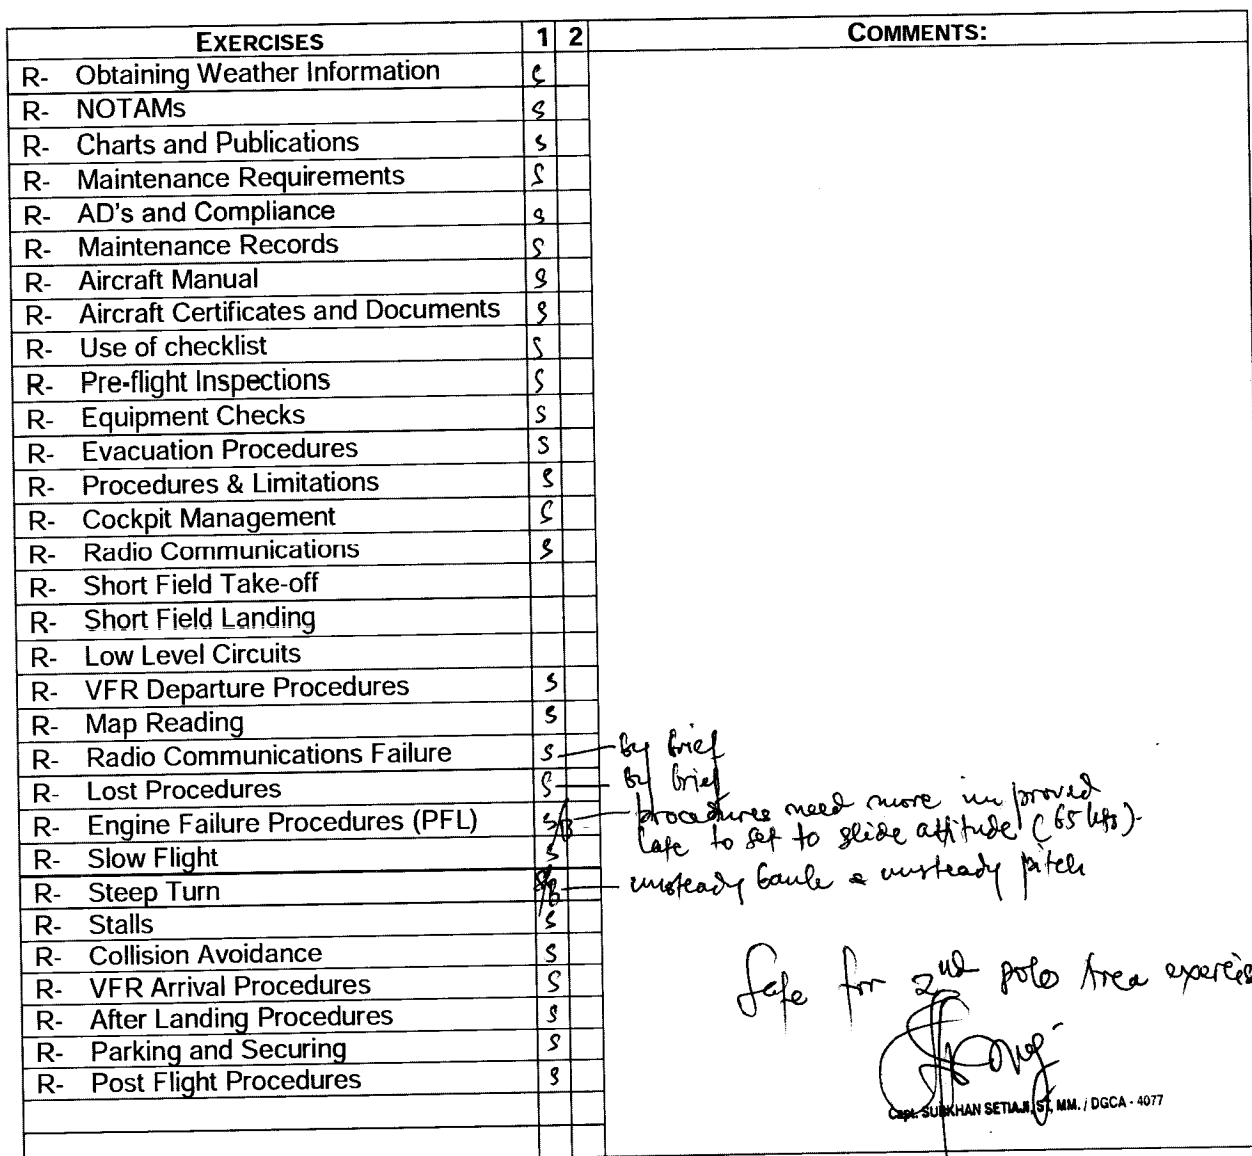 EXERCISES 1 2 COMMENTS:
R- Obtaining Weather Information S
R- NOTAMs S
R- Charts and Publications S
R- Maintenance Requirements S
R- AD's and Compliance S
R- Maintenance Records S
R- Aircraft Manual S
R- Aircraft Certificates and Documents S
R- Use of checklist S
R- Pre-flight Inspections S
R- Equipment Checks S
R- Evacuation Procedures S
R- Procedures & Limitations S
R- Cockpit Management S
R- Radio Communications S
R- Short Field Take-off
R- Short Field Landing
R- Low Level Circuits
R- VFR Departure Procedures S
R- Map Reading S
R- Radio Communications Failure S - By brief
R- Lost Procedures S - By brief
R- Engine Failure Procedures (PFL) S/B - procedures need more improved
late to set to glide attitude (65 kts).
R- Slow Flight S
R- Steep Turn S/B - unsteady bank & unsteady pitch
R- Stalls S
R- Collision Avoidance S
R- VFR Arrival Procedures S
Safe for 2nd solo Area exercis
R- After Landing Procedures S
R- Parking and Securing S
R- Post Flight Procedures S
Capt. SUBKHAN SETIAJI, ST, MM. / DGCA - 4077